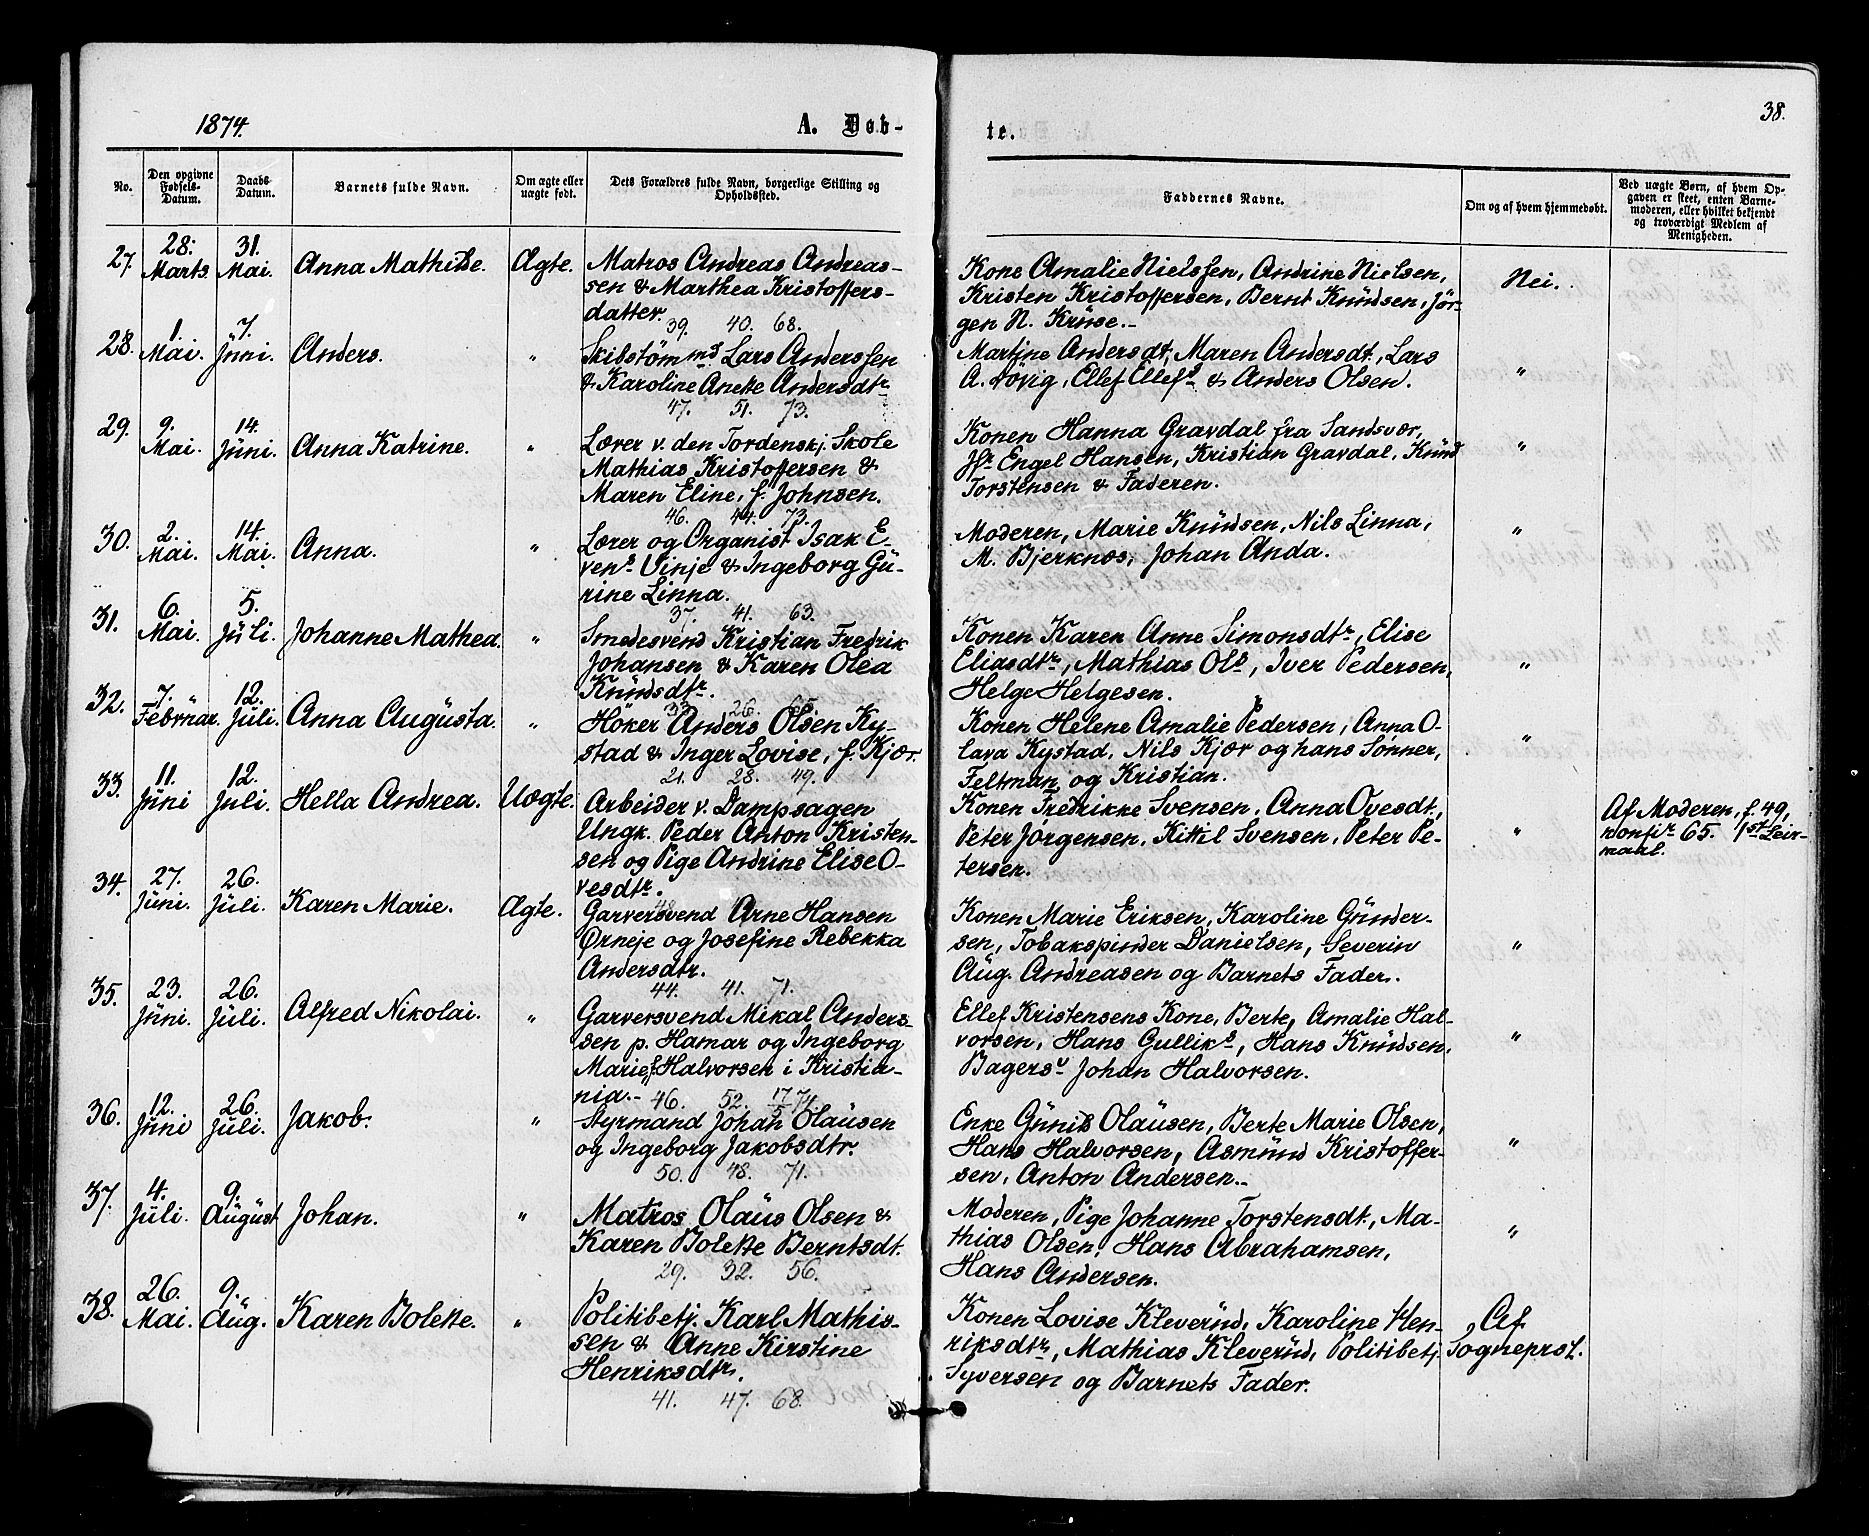 1874.
A. Døb-
te.
38.
No.
Den opgivne Fødsels-Datum.
Daabs Datum.
Barnets fulde Navn.
Om ægte eller uægte født.
Dets Forældres fulde Navn, borgerlige Stilling og Opholdssted.
Faddernes Navne.
Om og af hvem hjemmedøbt.
Ved uægte Børn, af hvem Opgaven er skeet, enten Barnemoderen, eller hvilket bekjendt og troværdigt Medlem af Menigheden.
27. 28: Marts. 31. Mai. Anna Mathilde. Ægte.
Matros Andreas Andreas-
sen & Marthea Kristoffers-
datter.
39. 40. 68.
Kone Amalie Nielssen, Andrine Nielsen,
Kristen Kristoffersen, Bernt Knudsen, Jør-
gen N. Kruse.-
Nei.
28. 1. Mai. 7. Juni. Anders. "
Skibstømmd. Lars Anderssen
& Karoline Anette Andersdtr
47. 51. 73.
Martine Andersdt, Maren Andersdt., Lars
A. Røvig, Ellef Ellefs & Anders Olsen.
"
29. 9. Mai. 14. Juni. Anna Katrine. "
Lærer v. den Tordenskj. Skole
Mathias Kristoffersen &
Maren Eline, f. Johnsen.
46. 44. 73.
Konen Hanna Gravdal fra Sandsvær,
Jfr Engel Hansen, Kristian Gravdal, Knud
Torstensen & Faderen.
"
30. 2. Mai. 14. Mai. Anna. "
Lærer og Organist Isak E-
vens Vinje & Ingeborg Gu-
rine Linna.
37. 41. 63.
Moderen, Marie Knudsen, Nils Linna,
M. Bjerknæs, Johan Anda.
"
31. 6. Mai. 5. Juli. Johanne Mathea. "
Smedesvend Kristian Fredrik
Johansen & Karen Olea
Knudsdtr.
26. 65.
Konen Karen Anne Simonsdtr, Elise
Eliasdtr, Mathias Ols, Iver Pedersen,
Helge Helgesen.
"
32. 7. Februar. 12. Juli. Anna Augusta. "
Høker Anders Olsen Ky-
stad & Inger Lovise, f. Kjær.
21. 28. 49.
Konen Helene Amalie Pedersen, Anna O-
lava Kystad, Nils Kjær og hans Sønner,
Feltman og Kristian.
"
33. 11. Juni 12. Juli. Hella Andrea. Uægte.
Arbeider v. Dampsagen
Ungk. Peder Anton Kristen-
sen og Pige Andrine Elise O-
vesdtr.
Konen Fredrikke Svensen, Anna Ovesdt.,
Peter Jørgensen, Kittil Svensen, Peter Pe-
tersen.
"
Af Moderen, f. 49,
konfir 65. 1ste Leir-
maal.
34. 27. Juni. 26. Juli. Karen Marie. Ægte.
Garversvend Arne Hansen
Ørneje og Josefine Rebekka
Andersdtr.
44. 41. 71.
Konen Marie Eriksen, Karoline Gunder-
sen, Tobakspinder Danielsen, Severin
Aug. Andreasen og Barnets Fader.
"
35. 23. Juni. 26. Juli. Alfred Nikolai. "
Garversvend Mikal Anders-
sen p. Hamar og Ingeborg
Marie f. Halvorsen i Kristia-
nia.-
46. 52. 17/5 71.
Ellef Kristensens Kone, Berte, Amalie Hal-
vorsen, Hans Gulliks, Hans Knudsen,
Bagersv Johan Halvorsen.
"
36. 12. Juni 26. Juli. Jakob. "
Styrmand Johan Olausen
og Ingeborg Jakobsdtr.
50. 48. 71.
Enke Gunild Olausen, Berte Marie Olsen,
Hans Halvorsen, Asmund Kristoffer-
sen, Anton Andersen.-
"
37. 4. Juli. 9. August Johan. "
Matros Olaus Olsen &
Karen Bolette Berntsdt.
29. 32. 56.
Moderen, Pige Johanne Torstensdt., Ma-
thias Olsen, Hans Abrahamsen,
Hans Andersen.
"
38. 26. Mai. 9. Aug. Karen Bolette. "
Politibetj. Karl Mathis-
sen & Anne Kirstine
Henriksdtr.
41. 47. 68.
Konen Lovise Kleverud, Karoline Hen-
riksdtr, Mathias Kleverud, Politibetj.
Syversen og Barnets Fader.
Af
Sogneprst.